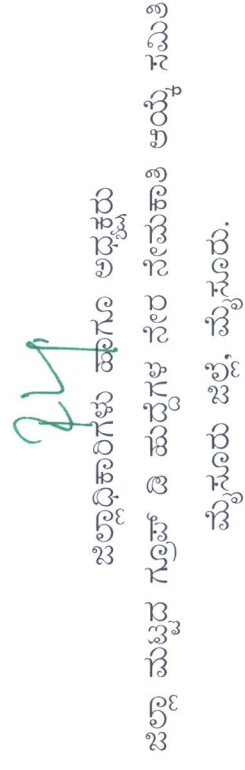 ಜಿಲ್ಲಾಧಿಕಾರಿಗಳು ಹಾಗೂ ಅಧ್ಯಕ್ಷರು
ಜಿಲ್ಲಾ ಮಟ್ಟದ ಗ್ರೂಪ್ ಡಿ ಹುದ್ದೆಗಳ ನೇರ ನೇಮಕಾತಿ ಆಯ್ಕೆ ಸಮಿತಿ
ಮೈಸೂರು ಜಿಲ್ಲೆ, ಮೈಸೂರು.